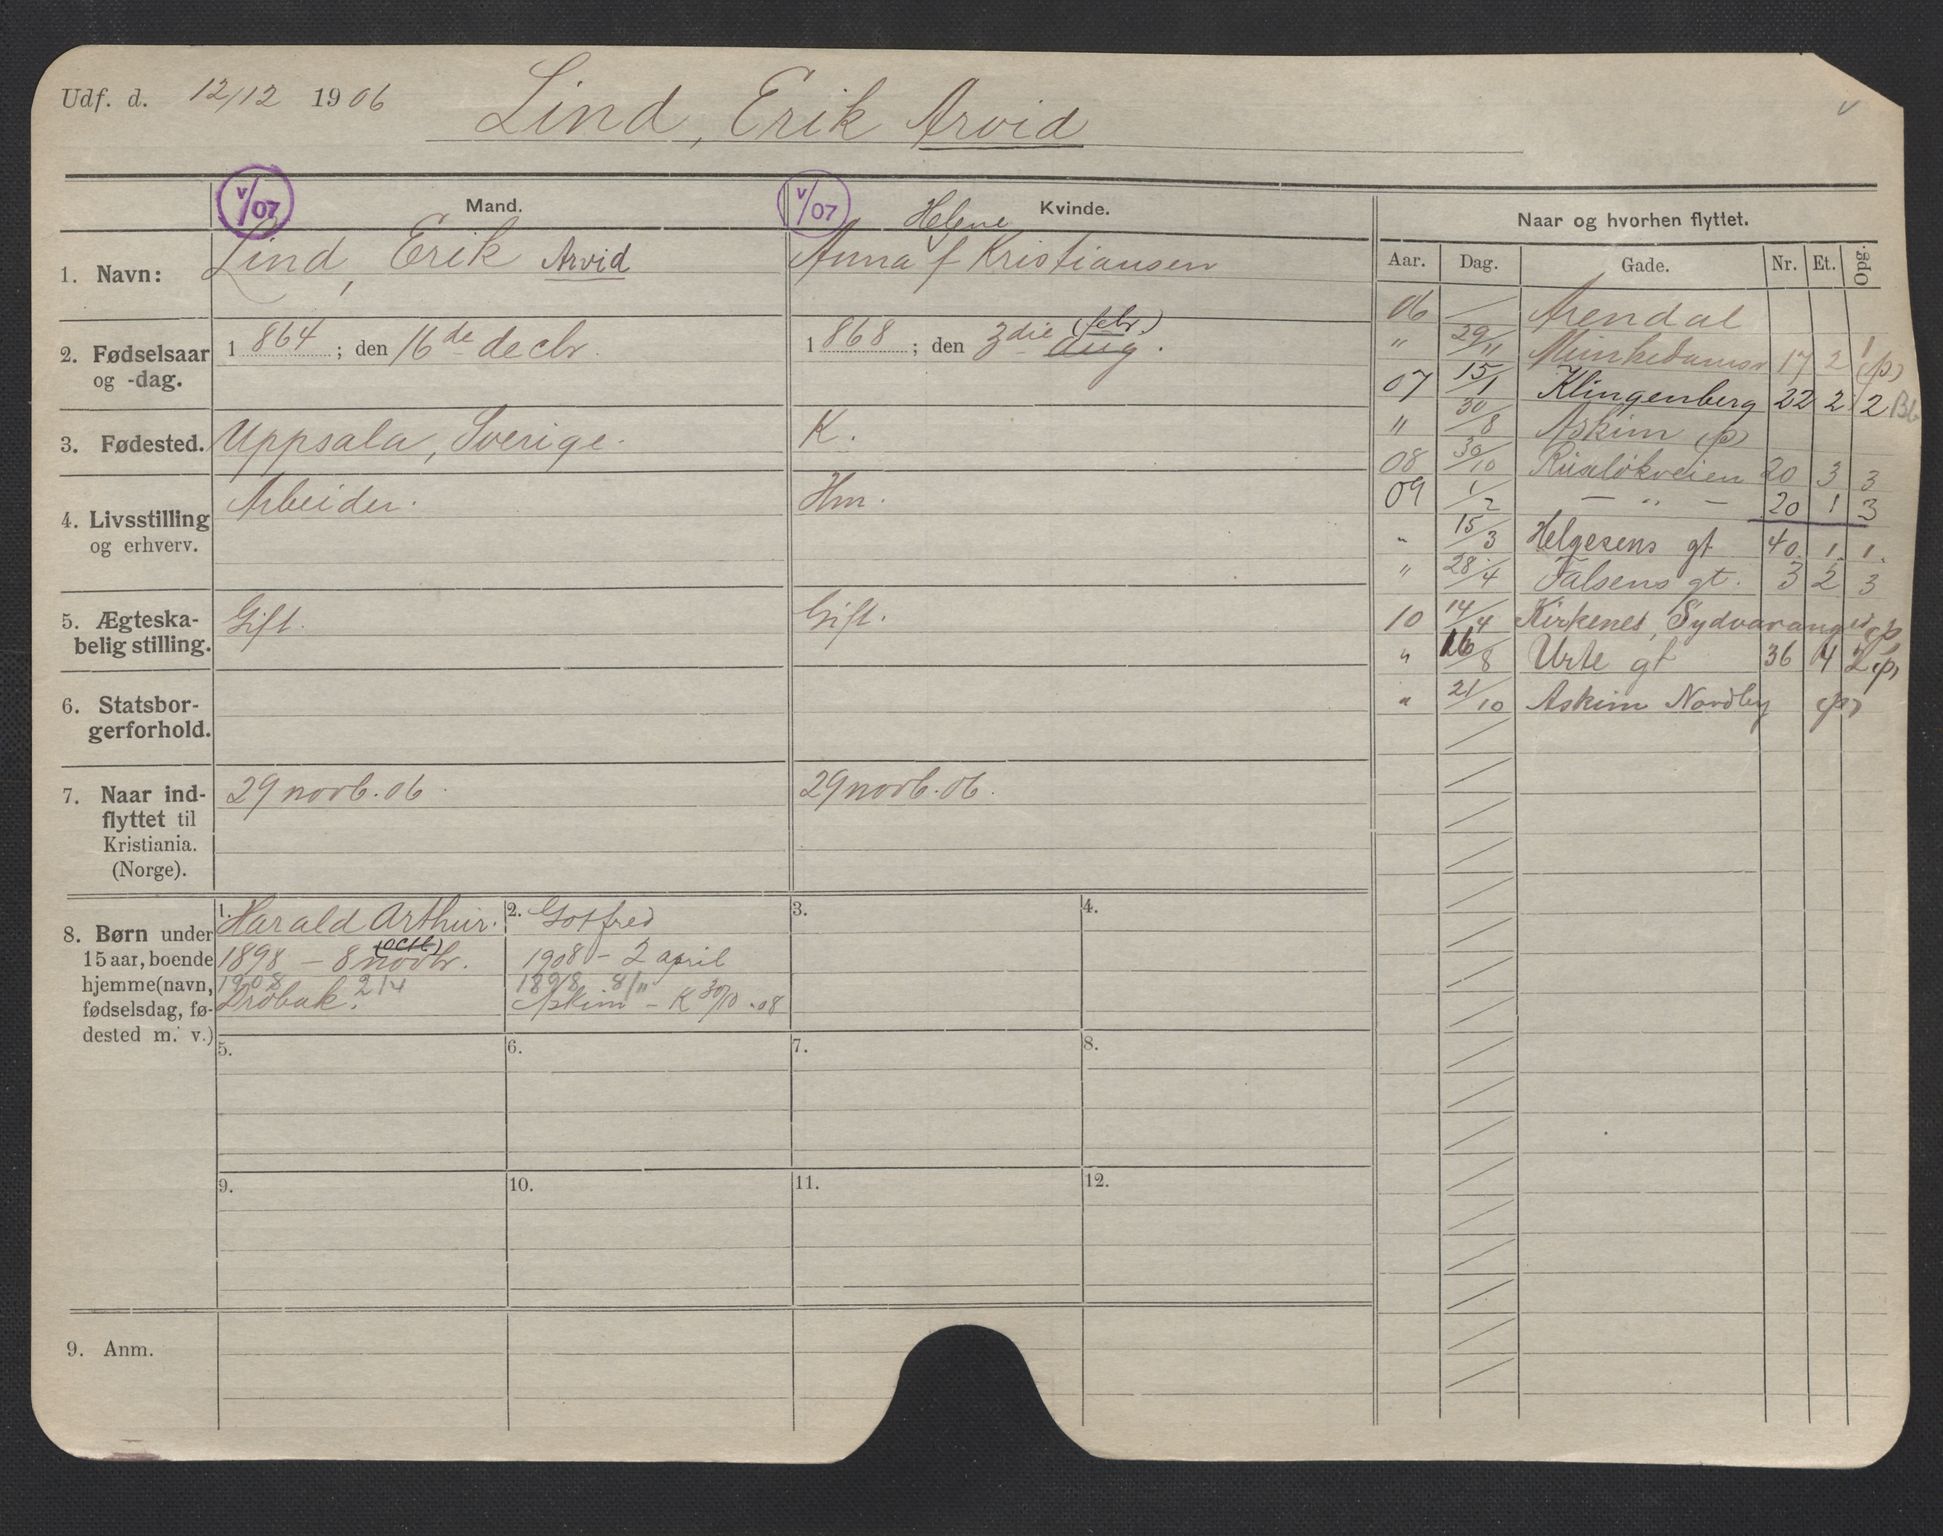 Udf. d. 12/12 1906 Lind, Erik Arvid
v
v/07 Mand. v/07 Kvinde.
1. Navn: Lind, Erik Arvid
Helene
Anna f Kristiansen
2. Fødselsaar og -dag. 1 864 ; den 16de decbr.
1 868 ; den 3die aug. (febr.)
3. Fødested. Uppsala, Sverige.
K.
4. Livsstilling og erhverv. Arbeider.
Hm.
5. Ægteskabelig stilling. Gift.
Gift.
6. Statsborgerforhold.
7. Naar indflyttet til Kristiania. (Norge). 29 novb. 06.
29 novb. 06.
8. Børn under
15 aar, boende
hjemme (navn,
fødselsdag, fødested m. v.)
1. Harald Arthur.
1898 – 8 novbr. (octb)
1908 2/4
Drøbak.
2. Gotfred
1908 – 2 april
1898 8/11
Askim – K 30/10.08
3.
4.
5.
6.
7.
8.
9.
10.
11.
12.
9. Anm.
Naar og hvorhen flyttet.
Aar. Dag. Gade. Nr. Et. Opg.
06 Arendal
" 29/11 Munkedamsv 17 2 1 (p)
07 15/1 Klingenberg 22 2 2 Bb
" 30/8 Askim (p)
08 30/10 Ruseløkveien 20 3 3
09 1/2 – " – 20 1 3
" 15/3 Helgesens gt 40. 1. 1.
" 28/4 Falsens gt. 3 2 3
10 14/4 Kirkenes, Sydvaranger (p)
" 16/8 Urte gt 36 4 2 (p)
" 21/10 Askim Nordby (p)